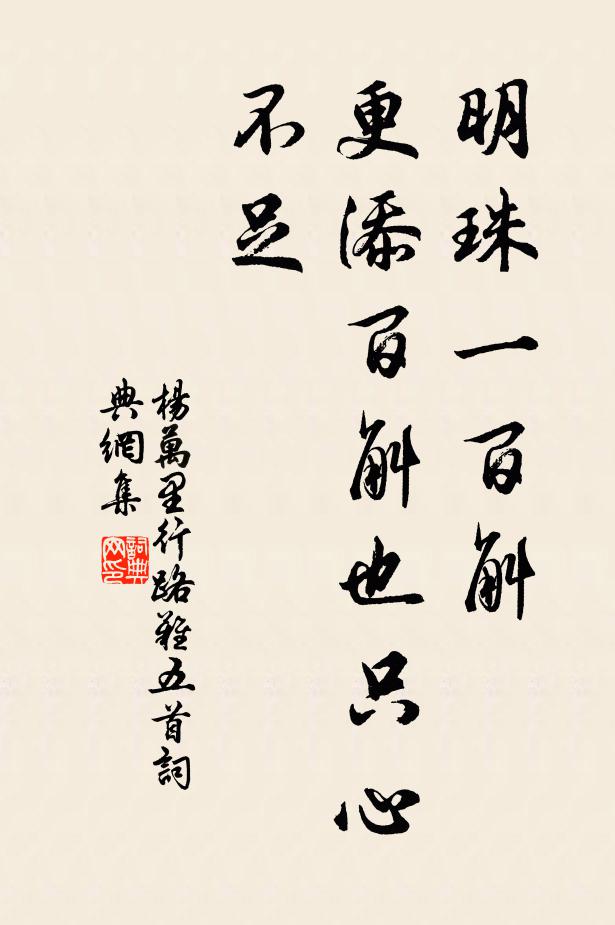 明珠一百斛
更添百斛也只心
不足
楊萬里行路難五首詞
典網集
詞典网印